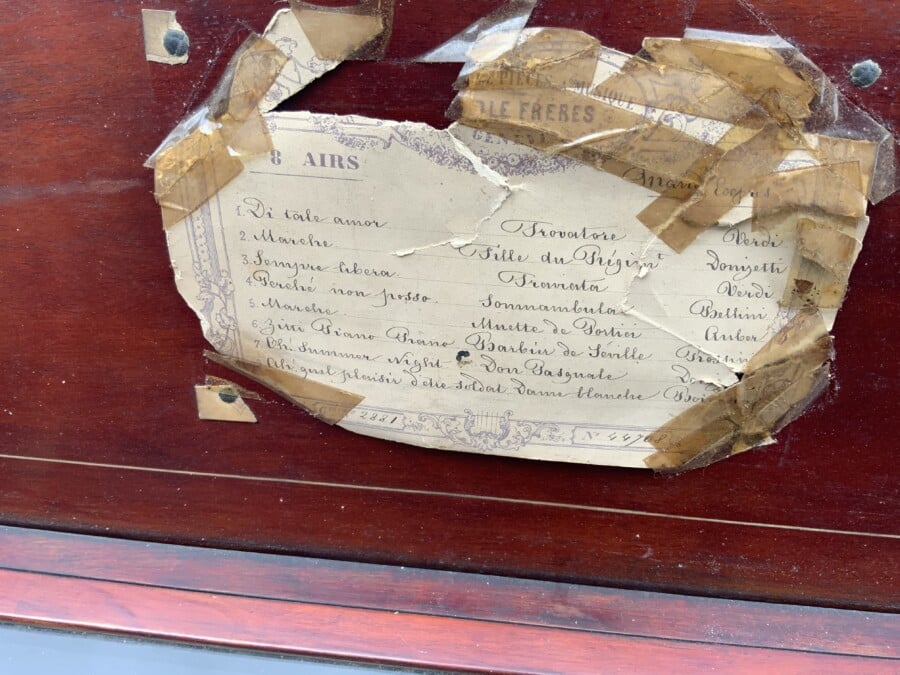 PIÈCES À MUSIQUE
LE FRÈRES
GENÈV
8 AIRS
1. Di tale amor Trovatore Verdi
2. Marche Fille du Régimt Donizetti
3. Sempre libera Traviata Verdi
4. Perché non posso. Sonnambula Bellin
5. Marche Muette de Portici Auber
6. Ziti Piano Piano Barbier de Séville
7. Oh! Summer Night Don Pasquale Do
Ah! quel plaisir d'être soldat Dame blanche Boi
2881 No 44768